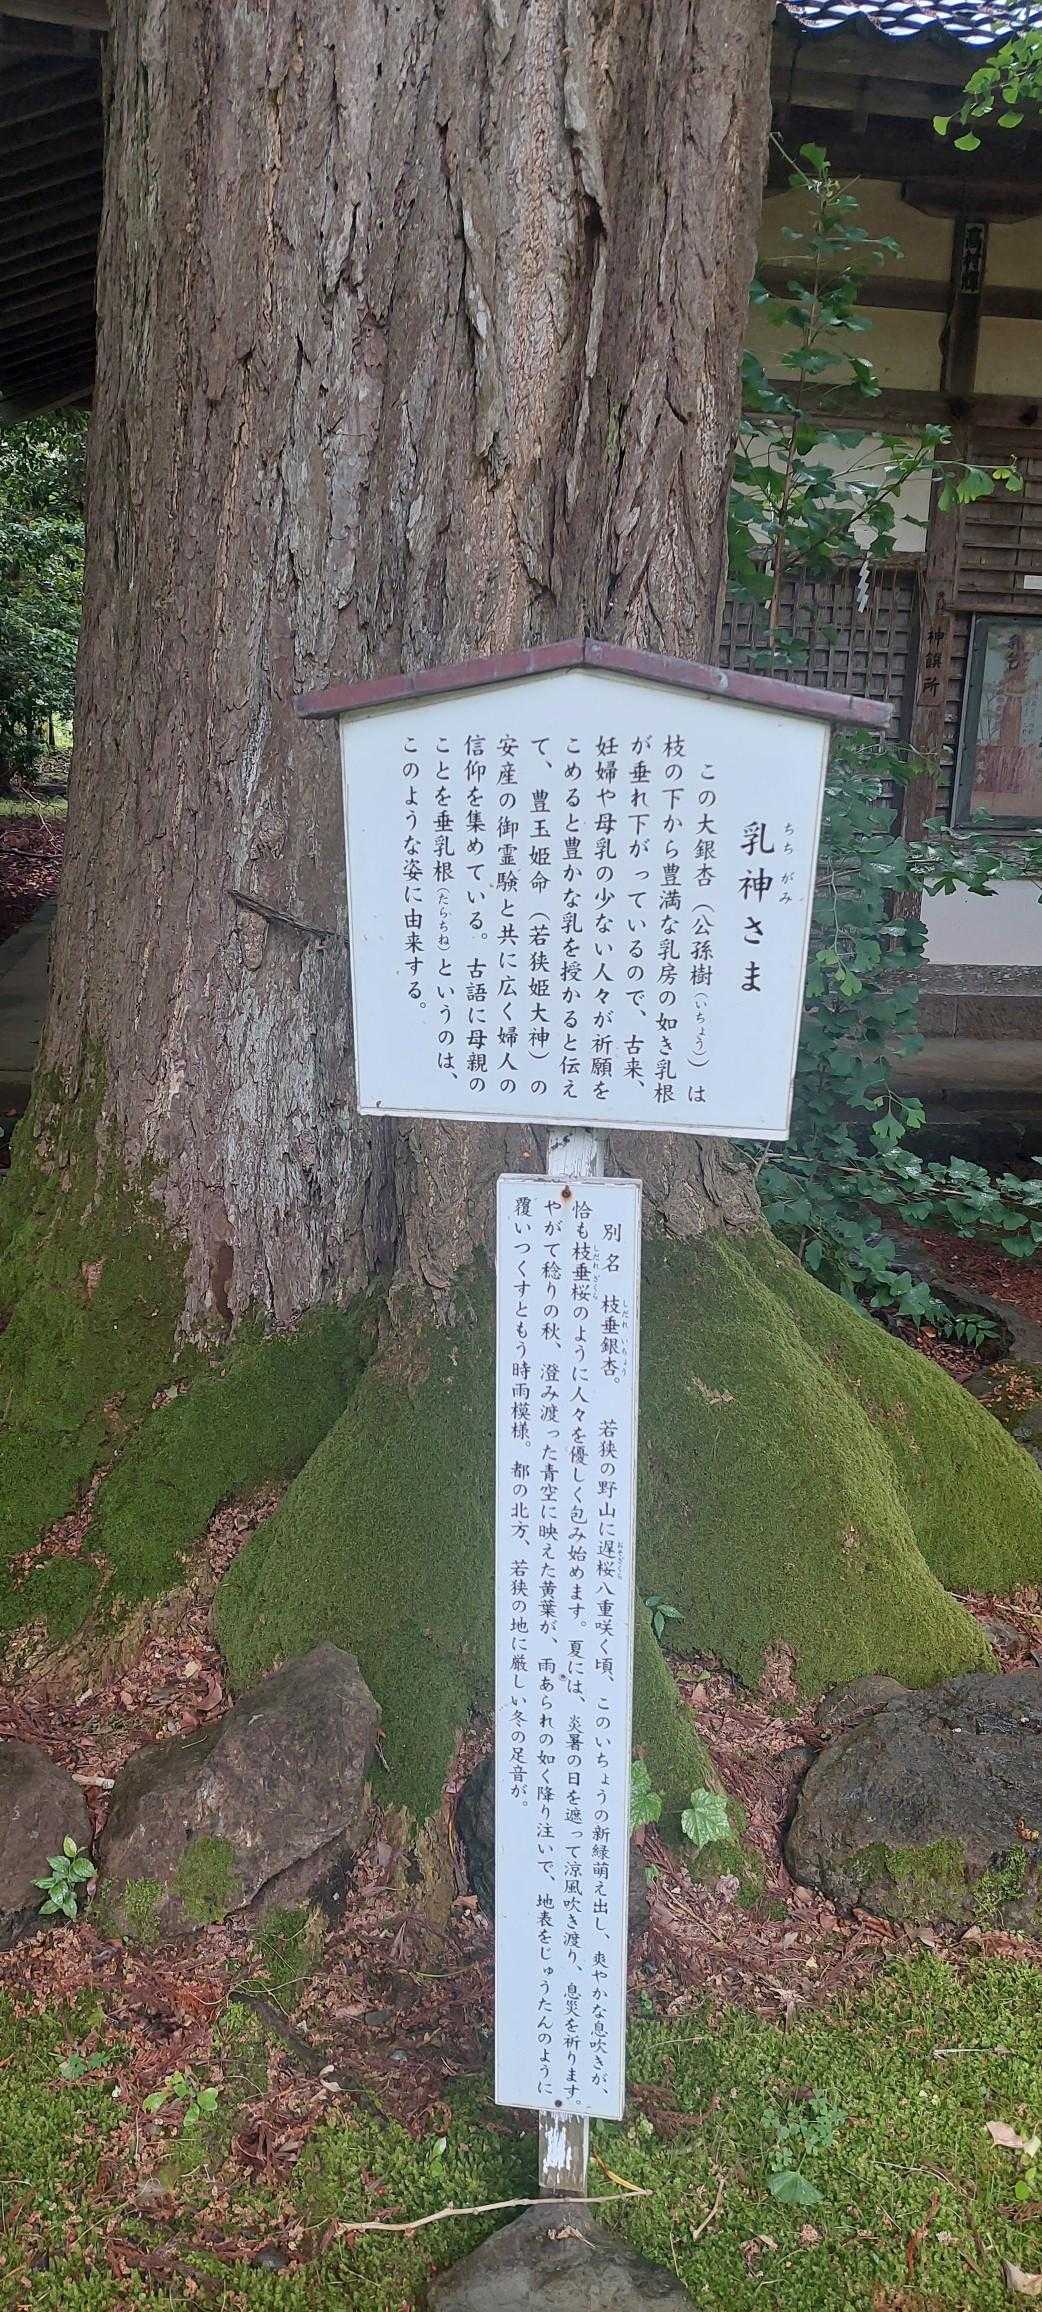 乳神さま
ちちがみ
この大銀杏（公孫樹（いちょう））は
枝の下から豊満な乳房の如き乳根
が垂れ下がっているので、古来、
妊婦や母乳の少ない人々が祈願を
こめると豊かな乳を授かると伝え
て、豊玉姫命（若狭姫大神）の
安産の御霊験と共に広く婦人の
信仰を集めている。古語に母親の
ことを垂乳根（たらちね）というのは、
このような姿に由来する。
別名 枝垂銀杏。 若狭の野山に遅桜八重咲く頃、このいちょうの新緑萌え出し、爽やかな息吹きが、
しだれいちょう
おそざくら
恰も枝垂桜のように人々を優しく包み始めます。夏には、炎暑の日を遮って涼風吹き渡り、息災を祈ります。
しだれざくら
やがて稔りの秋、澄み渡った青空に映えた黄葉が、雨あられの如く降り注いで、地表をじゅうたんのように
覆いつくすともう時雨模様。都の北方、若狭の地に厳しい冬の足音が。
神饌所